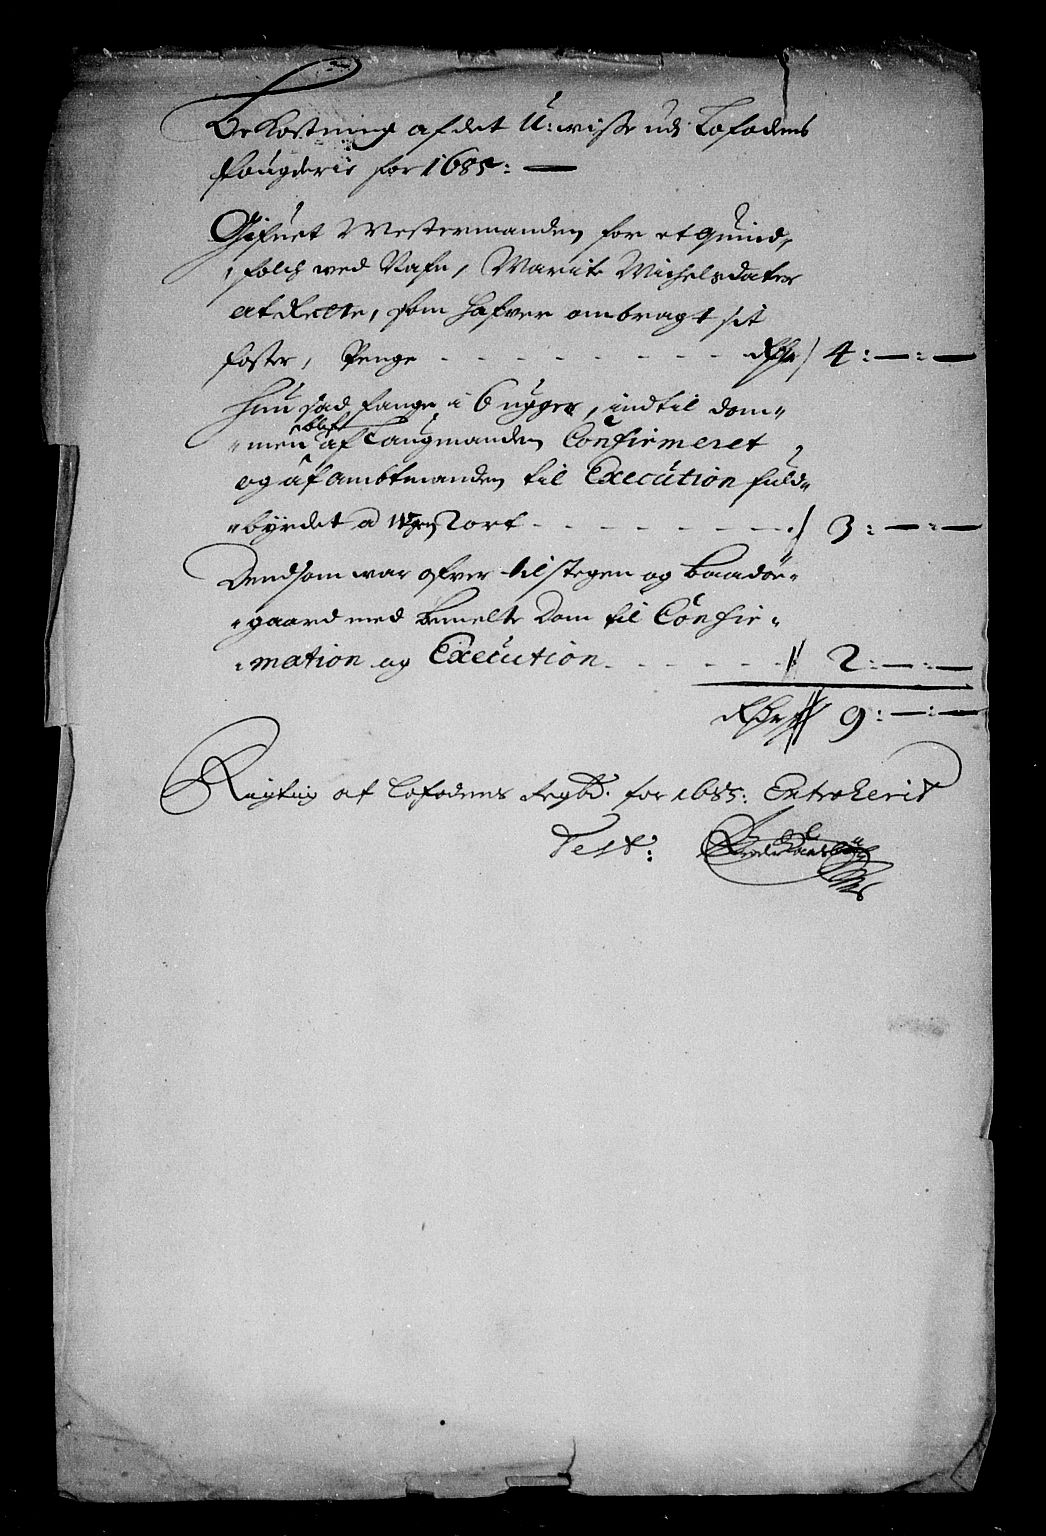 Bekostning af det U:wisse udj Lofodens
fougderie for 1685: —
Gifuet Mestermanden for et Quind,
folch ved Nafn, Marite Michelsdater
at Rette, som hafver ombragt sit
foster, Penge - - - - - - - Rdr 4:—:—
Hun sad fange i 6 ugger, indtil dom-
-men blef af Laugmanden Confirmeret,
og af ambtmanden til Execution fuld-
-byrdet a ugen 2 ort - - - - - - - 3:—:—
Dend som war ofver til stegen og Baadøe-
-gaard med bemelte Dom til Confir-
-mation og Execution - - - - - - 2:—:—
Rdr 9:—:—
Rigtig af Lofodens Regbd. for 1685: Extraherit
Test: